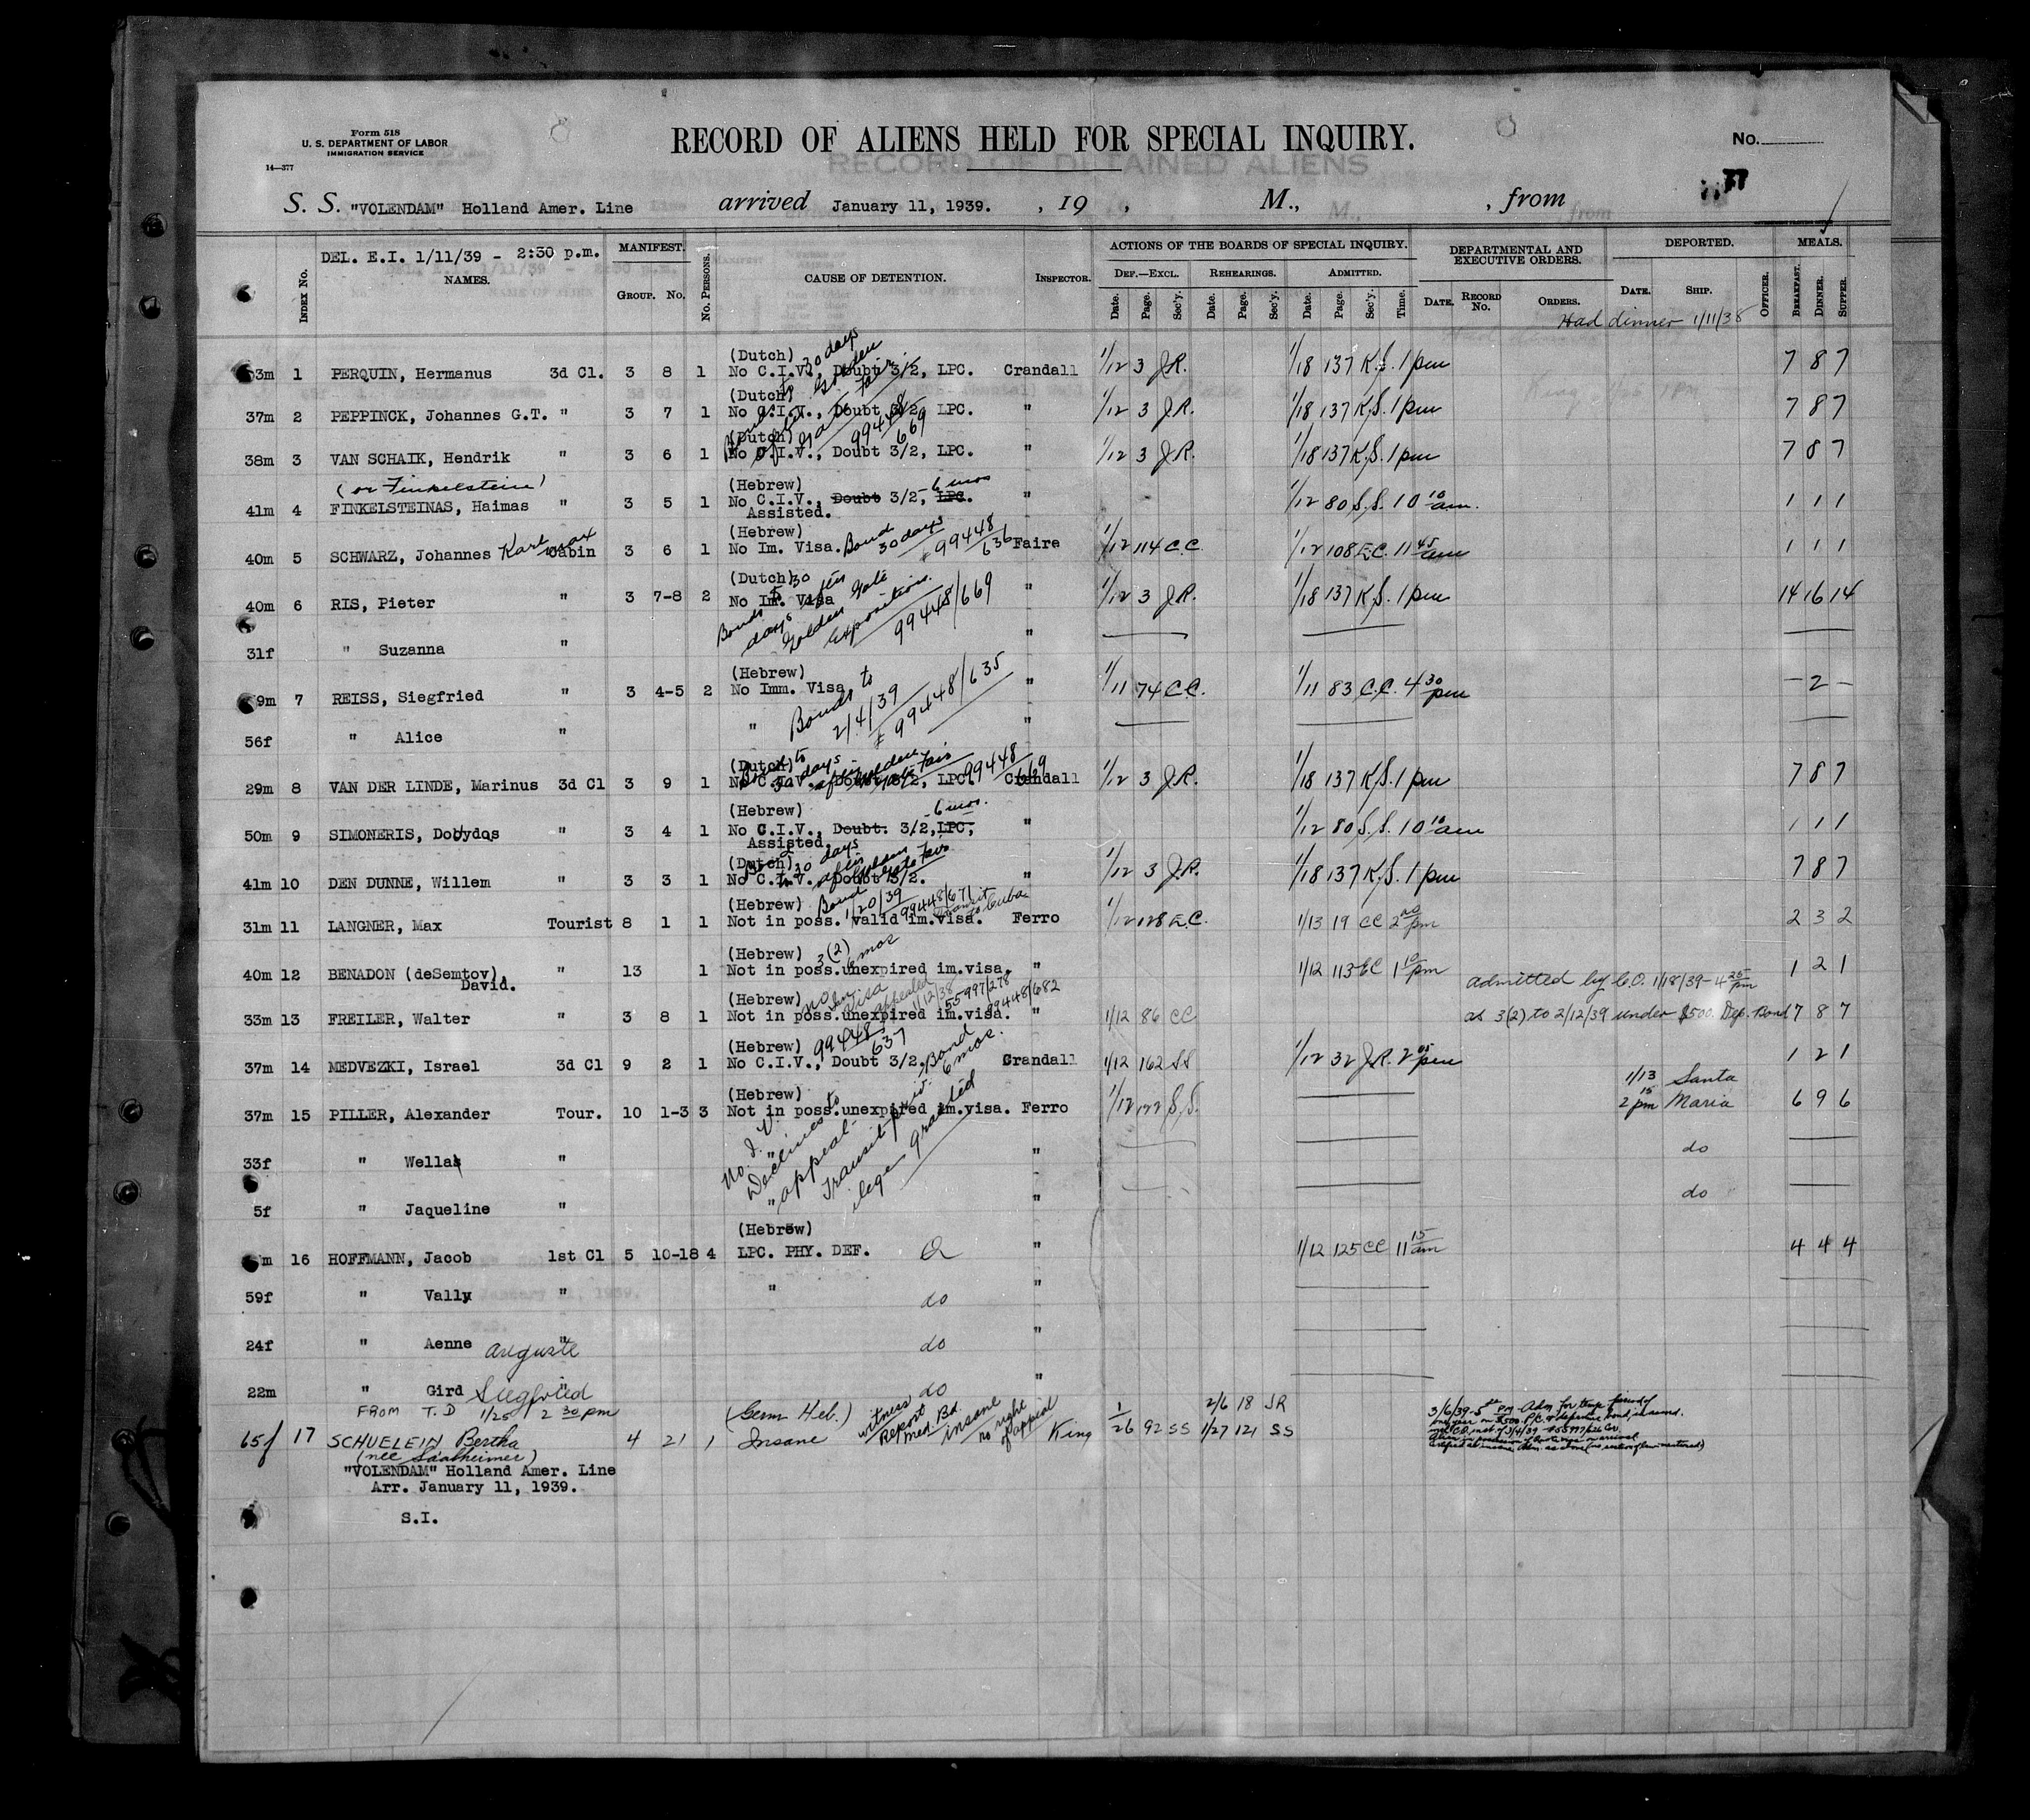 Form 518
U. S. DEPARTMENT OF LABOR
IMMIGRATION SERVICE
14—377
RECORD OF ALIENS HELD FOR SPECIAL INQUIRY.
No.
77
S. S. "VOLENDAM" Holland Amer. Line arrived January 11, 1939. , 19 , M., , from
DEL. E.I. 1/11/39 - 2:30 p.m.
Index No. NAMES. MANIFEST. Group. No. No. Persons. CAUSE OF DETENTION. Inspector. ACTIONS OF THE BOARDS OF SPECIAL INQUIRY. DEPARTMENTAL AND EXECUTIVE ORDERS. DEPORTED. MEALS.
Def.—Excl. Rehearings. Admitted.
Date. Page. Sec'y. Date. Page. Sec'y. Date. Page. Sec'y. Time. Date. Record No. Orders. Date. Ship. Officer. Breakfast. Dinner. Supper.
Had dinner 1/11/38
(Dutch)
3m 1 PERQUIN, Hermanus 3d Cl. 3 8 1 No C.I.V., Doubt 3/2, LPC. Crandall 1/12 3 J.R. 1/18 137 K.S. 1 pm 7 8 7
(Dutch)
37m 2 PEPPINCK, Johannes G.T. " 3 7 1 No C.I.V., Doubt 3/2, LPC. " 1/12 3 J.R. 1/18 137 K.S. 1 pm 7 8 7
99448/669
(Dutch)
38m 3 VAN SCHAIK, Hendrik " 3 6 1 No C.I.V., Doubt 3/2, LPC. " 1/12 3 J.R. 1/18 137 K.S. 1 pm 7 8 7
(or Finkelstein) (Hebrew) 6 mos
41m 4 FINKELSTEINAS, Haimas " 3 5 1 No C.I.V., Doubt 3/2, LPC. " 1/12 80 S.S. 10 10 am. 1 1 1
Assisted.
(Hebrew)
40m 5 SCHWARZ, Johannes Karl Max Cabin 3 6 1 No Im. Visa. Bond 30 days 99448/636 Faire 1/12 114 C.C. 1/12 108 E.C. 11 45 am 1 1 1
(Dutch)
40m 6 RIS, Pieter " 3 7-8 2 No Im. Visa " 1/12 3 J.R. 1/18 137 K.S. 1 pm 14 16 14
Bonds to 30 days after Golden Gate Exposition. 99448/669
31f " Suzanna " "
(Hebrew)
9m 7 REISS, Siegfried " 3 4-5 2 No Imm. Visa " 1/11 74 C.C. 1/11 83 C.C. 4 30 pm — 2 —
Bonds to 2/4/39 99448/635
56f " Alice " " "
(Dutch)
29m 8 VAN DER LINDE, Marinus 3d Cl 3 9 1 No C.I.V., Doubt 3/2, LPC. 99448/669 Crandall 1/12 3 J.R. 1/18 137 K.S. 1 pm 7 8 7
(Hebrew) 6 mos.
50m 9 SIMONERIS, Dovydas " 3 4 1 No C.I.V., Doubt. 3/2, LPC, " 1/12 80 S.S. 10 10 am 1 1 1
Assisted.
(Dutch)
41m 10 DEN DUNNE, Willem " 3 3 1 No C.I.V., Doubt 3/2. " 1/12 3 J.R. 1/18 137 K.S. 1 pm 7 8 7
(Hebrew) Bond 1/20/39 99448/671 Transit to Cuba
31m 11 LANGNER, Max Tourist 8 1 1 Not in poss. valid im.visa. Ferro 1/12 128 E.C. 1/13 19 CC 2 00 pm 2 3 2
(Hebrew) 3(2) 6 mos
40m 12 BENADON (deSemtov), " 13 1 Not in poss.unexpired im.visa. " 1/12 113 EC 1 10 pm 1 2 1
David.
admitted by C.O. 1/18/39 - 4 25 pm
(Hebrew) Visa appealed 1/12/38 55997/278 99448/682
33m 13 FREILER, Walter " 3 8 1 Not in poss.unexpired im.visa. " 1/12 86 CC as 3(2) to 2/12/39 under $500. Dep. Bond 7 8 7
(Hebrew) 99448/637 Bond 6 mos.
37m 14 MEDVEZKI, Israel 3d Cl 9 2 1 No C.I.V., Doubt 3/2. Crandall 1/12 162 SS 1/12 32 J.R. 2 05 pm 1 2 1
(Hebrew)
37m 15 PILLER, Alexander Tour. 10 1-3 3 Not in poss.unexpired im.visa. Ferro 1/12 122 S.S. 1/13 2 15 pm Santa Maria 6 9 6
No I.V. Declines to appeal - Transit privilege granted
33f " Wella " " " do
5f " Jaqueline " " " do
(Hebrew)
m 16 HOFFMANN, Jacob 1st Cl 5 10-18 4 LPC. PHY. DEF. " 1/12 125 CC 11 15 am 4 4 4
59f " Vally " " do "
24f " Aenne Auguste " do "
22m " Gird Siegfried " do "
FROM T.D 1/25 2 30 pm
(Germ Heb.) witness Report Med. Bd. insane no right of appeal
65f 17 SCHUELEIN Bertha 4 21 1 Insane King 1/26 92 SS 1/27 121 SS 2/6 18 JR
(nee Saalheimer)
3/6/39 - 5 PM - Adm. for temp. period of
one year on $500.
"VOLENDAM" Holland Amer. Line
Arr. January 11, 1939.
S.I.